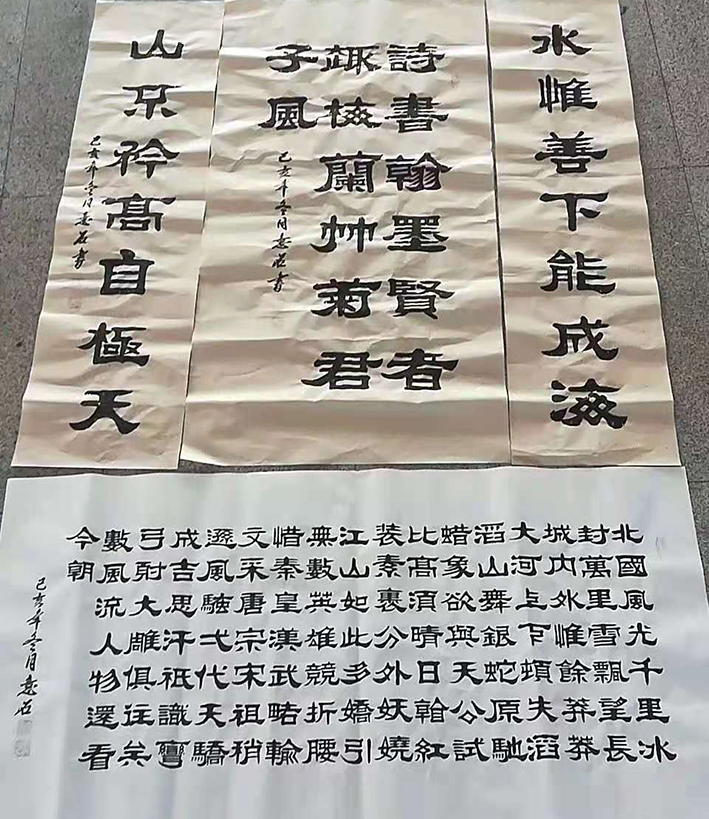 水惟善下能成海
詩書翰墨賢者
趣梅蘭竹菊君
子風
己亥年冬月意石書
山不矜高自極天
己亥年冬月意石書
北國風光千里冰
封萬里雪飄望長
城內外惟餘莽莽
大河上下頓失滔
滔山舞銀蛇原馳
蜡象欲與天公試
比高須晴日看紅
装素裹分外妖嬈
江山如此多嬌引
無數英雄競折腰
惜秦皇漢武略輸
文采唐宗宋祖稍
遜風騷弌代天驕
成吉思汗祇識彎
弓射大雕俱往矣
數風流人物還看
今朝
己亥年冬月意石